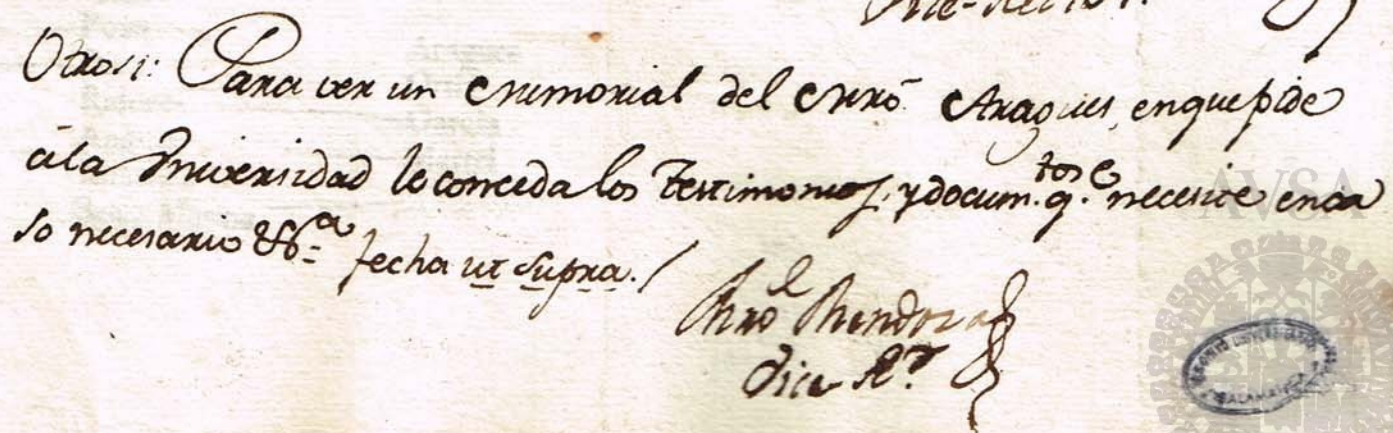 Vice-Rector.
Otrosi: Para ver un memorial del Mrô. Aragues, en que pide
a la Universidad le conceda los testimonios, y docum.tos q.e necesite en ca
so necesario &c.a fecha ut supra./
Mrô Mendoza
Vice-R.r
AVSA